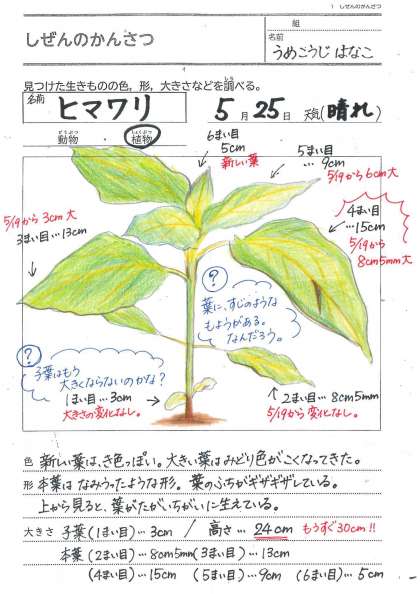 1 しぜんのかんさつ
しぜんのかんさつ
組
名前
うめこうじ はなこ
見つけた生きものの色，形，大きさなどを調べる。
しら
名前 ヒマワリ 5月25日 天気(晴れ)
どうぶつ しょくぶつ
動物 ・ 植物
6まい目
5cm
新しい葉
5まい目
… 9cm
5/19から6cm大
4まい目
…15cm
5/19から
8cm5mm大
5/19から3cm大
3まい目…13cm
?
葉に、すじのような
もようがある。
なんだろう。
?
子葉はもう
大きくならないのかな?
1まい目…3cm
大きさの変化なし。
2まい目…8cm5mm
5/19から変化なし。
色 新しい葉は、き色っぽい。大きい葉はみどり色がこくなってきた。
形 本葉はなみうったような形。葉のふちがギザギザしている。
上から見ると、葉がたがいちがいに生えている。
大きさ 子葉(1まい目)…3cm / 高さ…24cm もうすぐ30cm!!
本葉(2まい目)…8cm5mm(3まい目)…13cm
(4まい目)…15cm (5まい目)…9cm (6まい目)…5cm